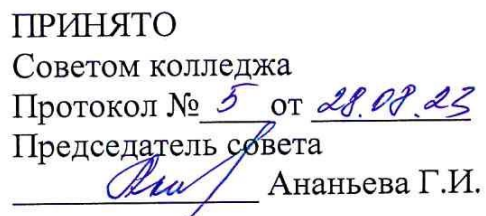 ПРИНЯТО
Советом колледжа
Протокол № 5 от 28.08.23
Председатель совета
Ананьева Г.И.